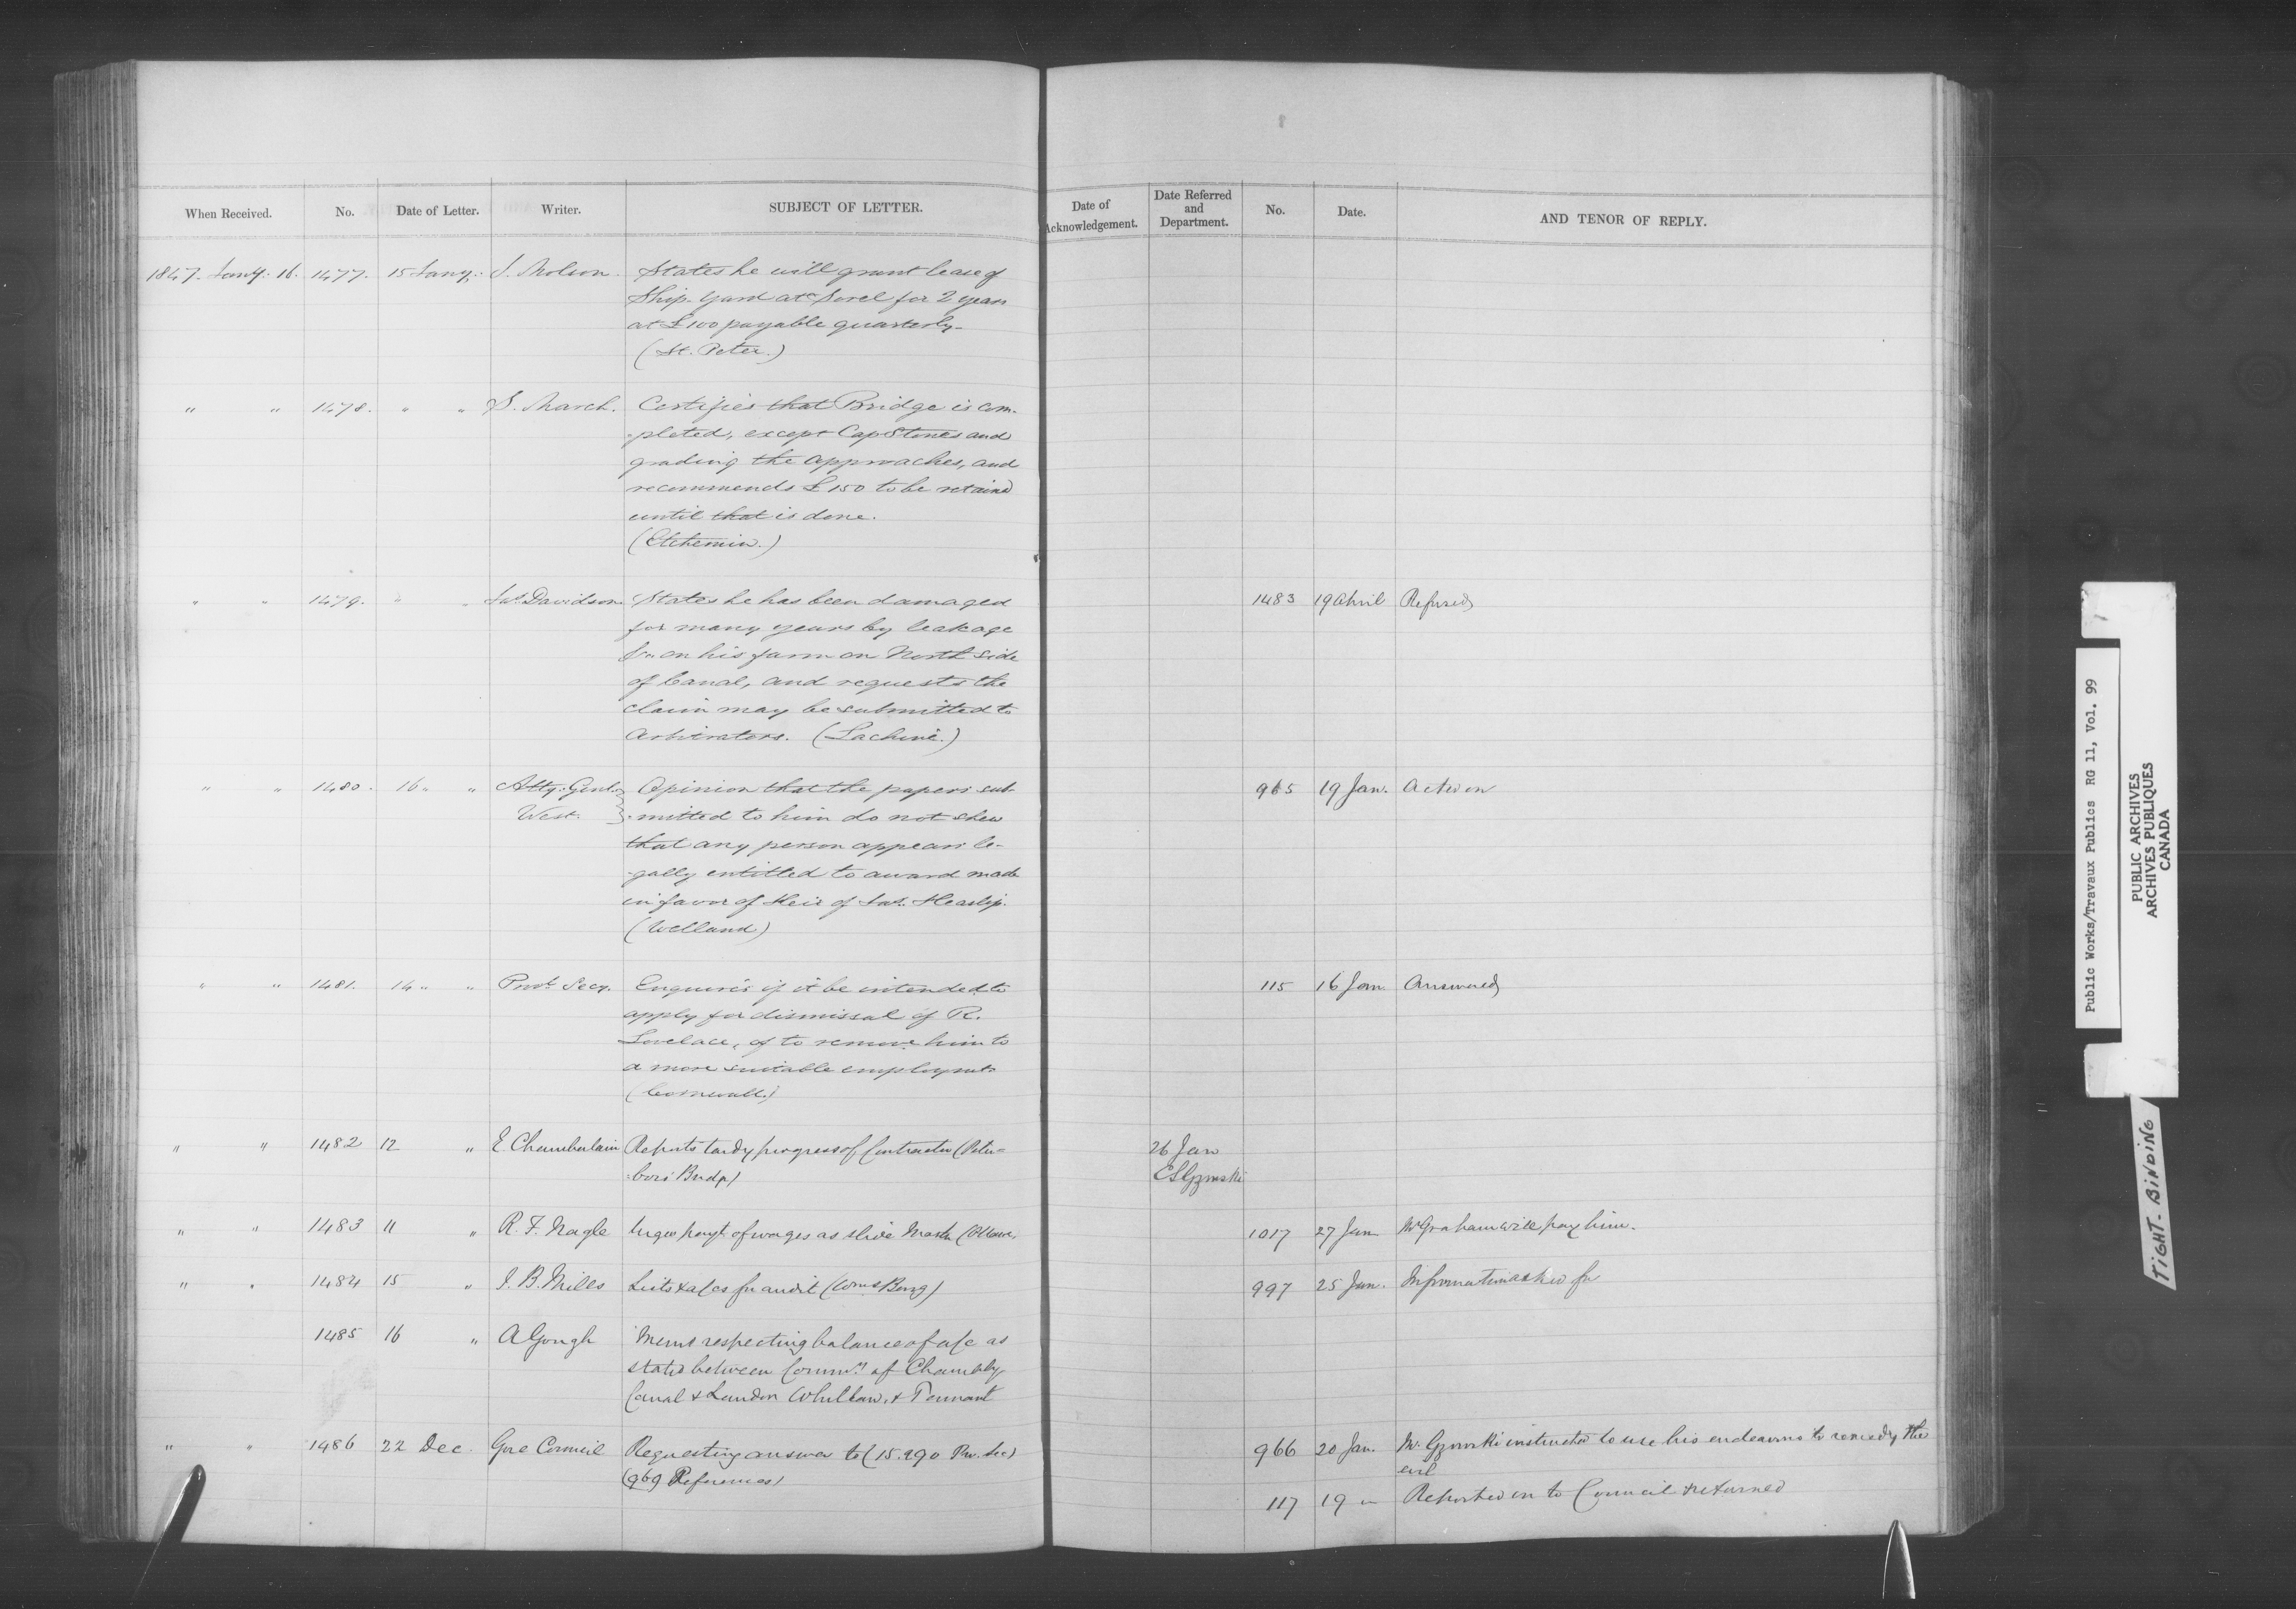 When Received. No. Date of Letter. Writer. SUBJECT OF LETTER.
Date of Acknowledgement. Date Referred and Department. No. Date. AND TENOR OF REPLY.
1847. Jany. 16. 1477. 15 Jany. J. Molson. States he will grant lease of
Ship-Yard at Sorel for 2 years
at £100 payable quarterly-
(St. Peter.)
" " 1478. " " S. March. Certifies that Bridge is com-
-pleted, except Cap Stones and
grading the approaches, and
recommends £150 to be retained
until that is done.
(Etchemin.)
" " 1479. " " Jas. Davidson States he has been damaged 1483 19 April Refused
for many years by leakage
&c on his farm on North side
of Canal, and requests the
claim may be submitted to
Arbitrators. (Lachine.)
" " 1480. 16 " " Atty. Genl. Opinion that the papers sub- 965 19 Jan. Acted on
West. -mitted to him do not shew
that any person appears le-
-gally entitled to award made
in favor of Heir of Jas. Heaslip.
(Welland)
" " 1481. 14 " " Provl. Secy. Enquires if it be intended to 115 16 Jan Answered
apply for dismissal of R.
Lovelace, of to remove him to
a more suitable employmt.
(Cornwall.)
" " 1482 12 " E Chamberlain Reports tardy progress of Contractor (Peter= 26 Jan
-boro' Bridge) CS Gzowski
" " 1483 11 " R. F. Nagle Urges payt of wages as slide Master (Ottawa) 1017 27 Jan Mr Graham will pay him.
" " 1484 15 " J. B. Mills Lists & a/cs for audit (Wms Burg) 997 25 Jan. Information asked for
1485 16 " A Gough Memo respecting balance of a/c as
stated between Commrs of Chambly
Canal & Whitlaw, & Tennant
" " 1486 22 Dec. Gore Council Requesting answer to (15.290 Prov. Sec) 966 20 Jan. Mr. Gzowski instructed to use his endeavours to remedy the
(969 References) evil
117 19 " Reported on to Council & returned
Public Works/Travaux Publics RG 11, Vol. 99
PUBLIC ARCHIVES
ARCHIVES PUBLIQUES
CANADA
TIGHT-BINDING